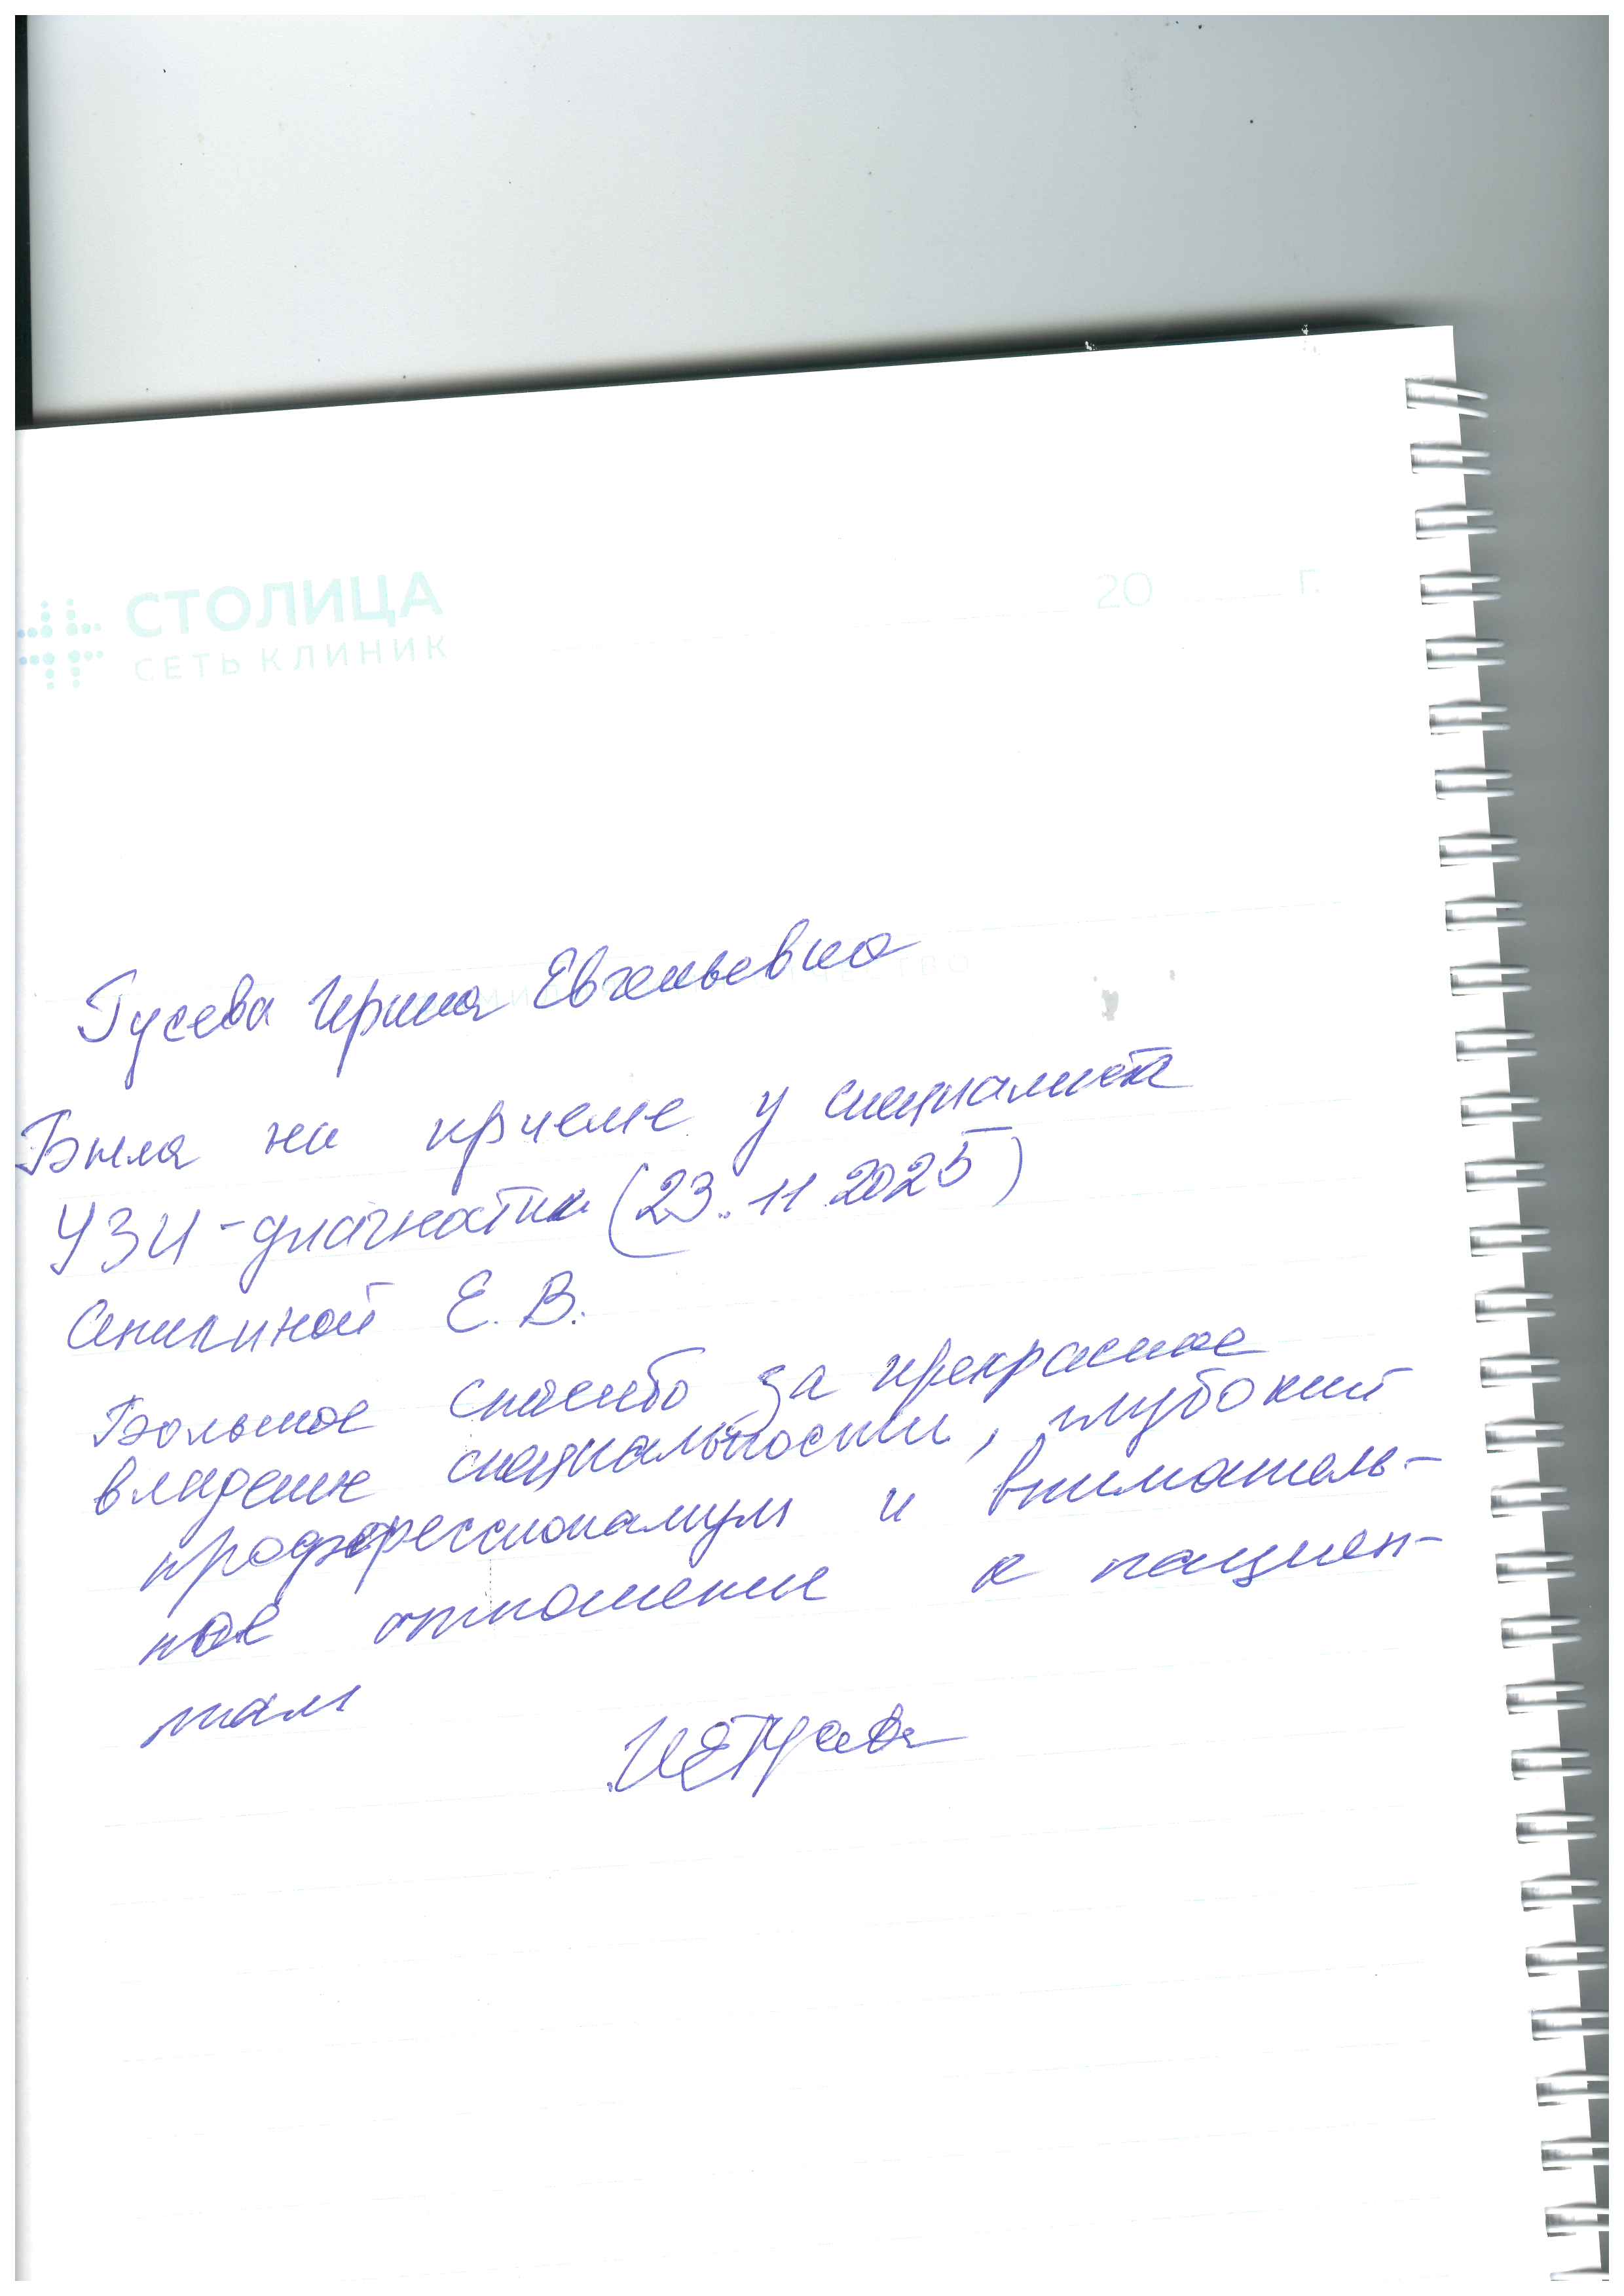 СТОЛИЦА
СЕТЬ КЛИНИК
20 г.
Гусева Ирина Евгеньевна
Была на приеме у специалиста
УЗИ-диагностики (23.11.2025)
Е. В.
Большое спасибо за прекрасное
владение специальностью, глубокий
профессионализм и вниматель-
ное отношение к пациен-
там